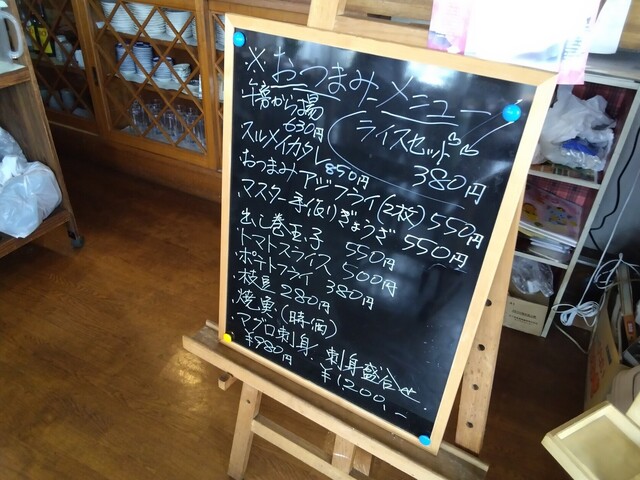 ※おつまみメニュー
・干唐から揚
630円
ライスセット
380円
・スルメイカ 850円
・おつまみアジフライ(2枚) 550円
・マスター手作りぎょうざ 550円
・出し巻玉子 550円
・トマトスライス 500円
・ポテトフライ 380円
・枝豆 280円
・焼魚(時価)
・マグロ刺身、刺身盛合せ.
¥980円 ¥1200,-